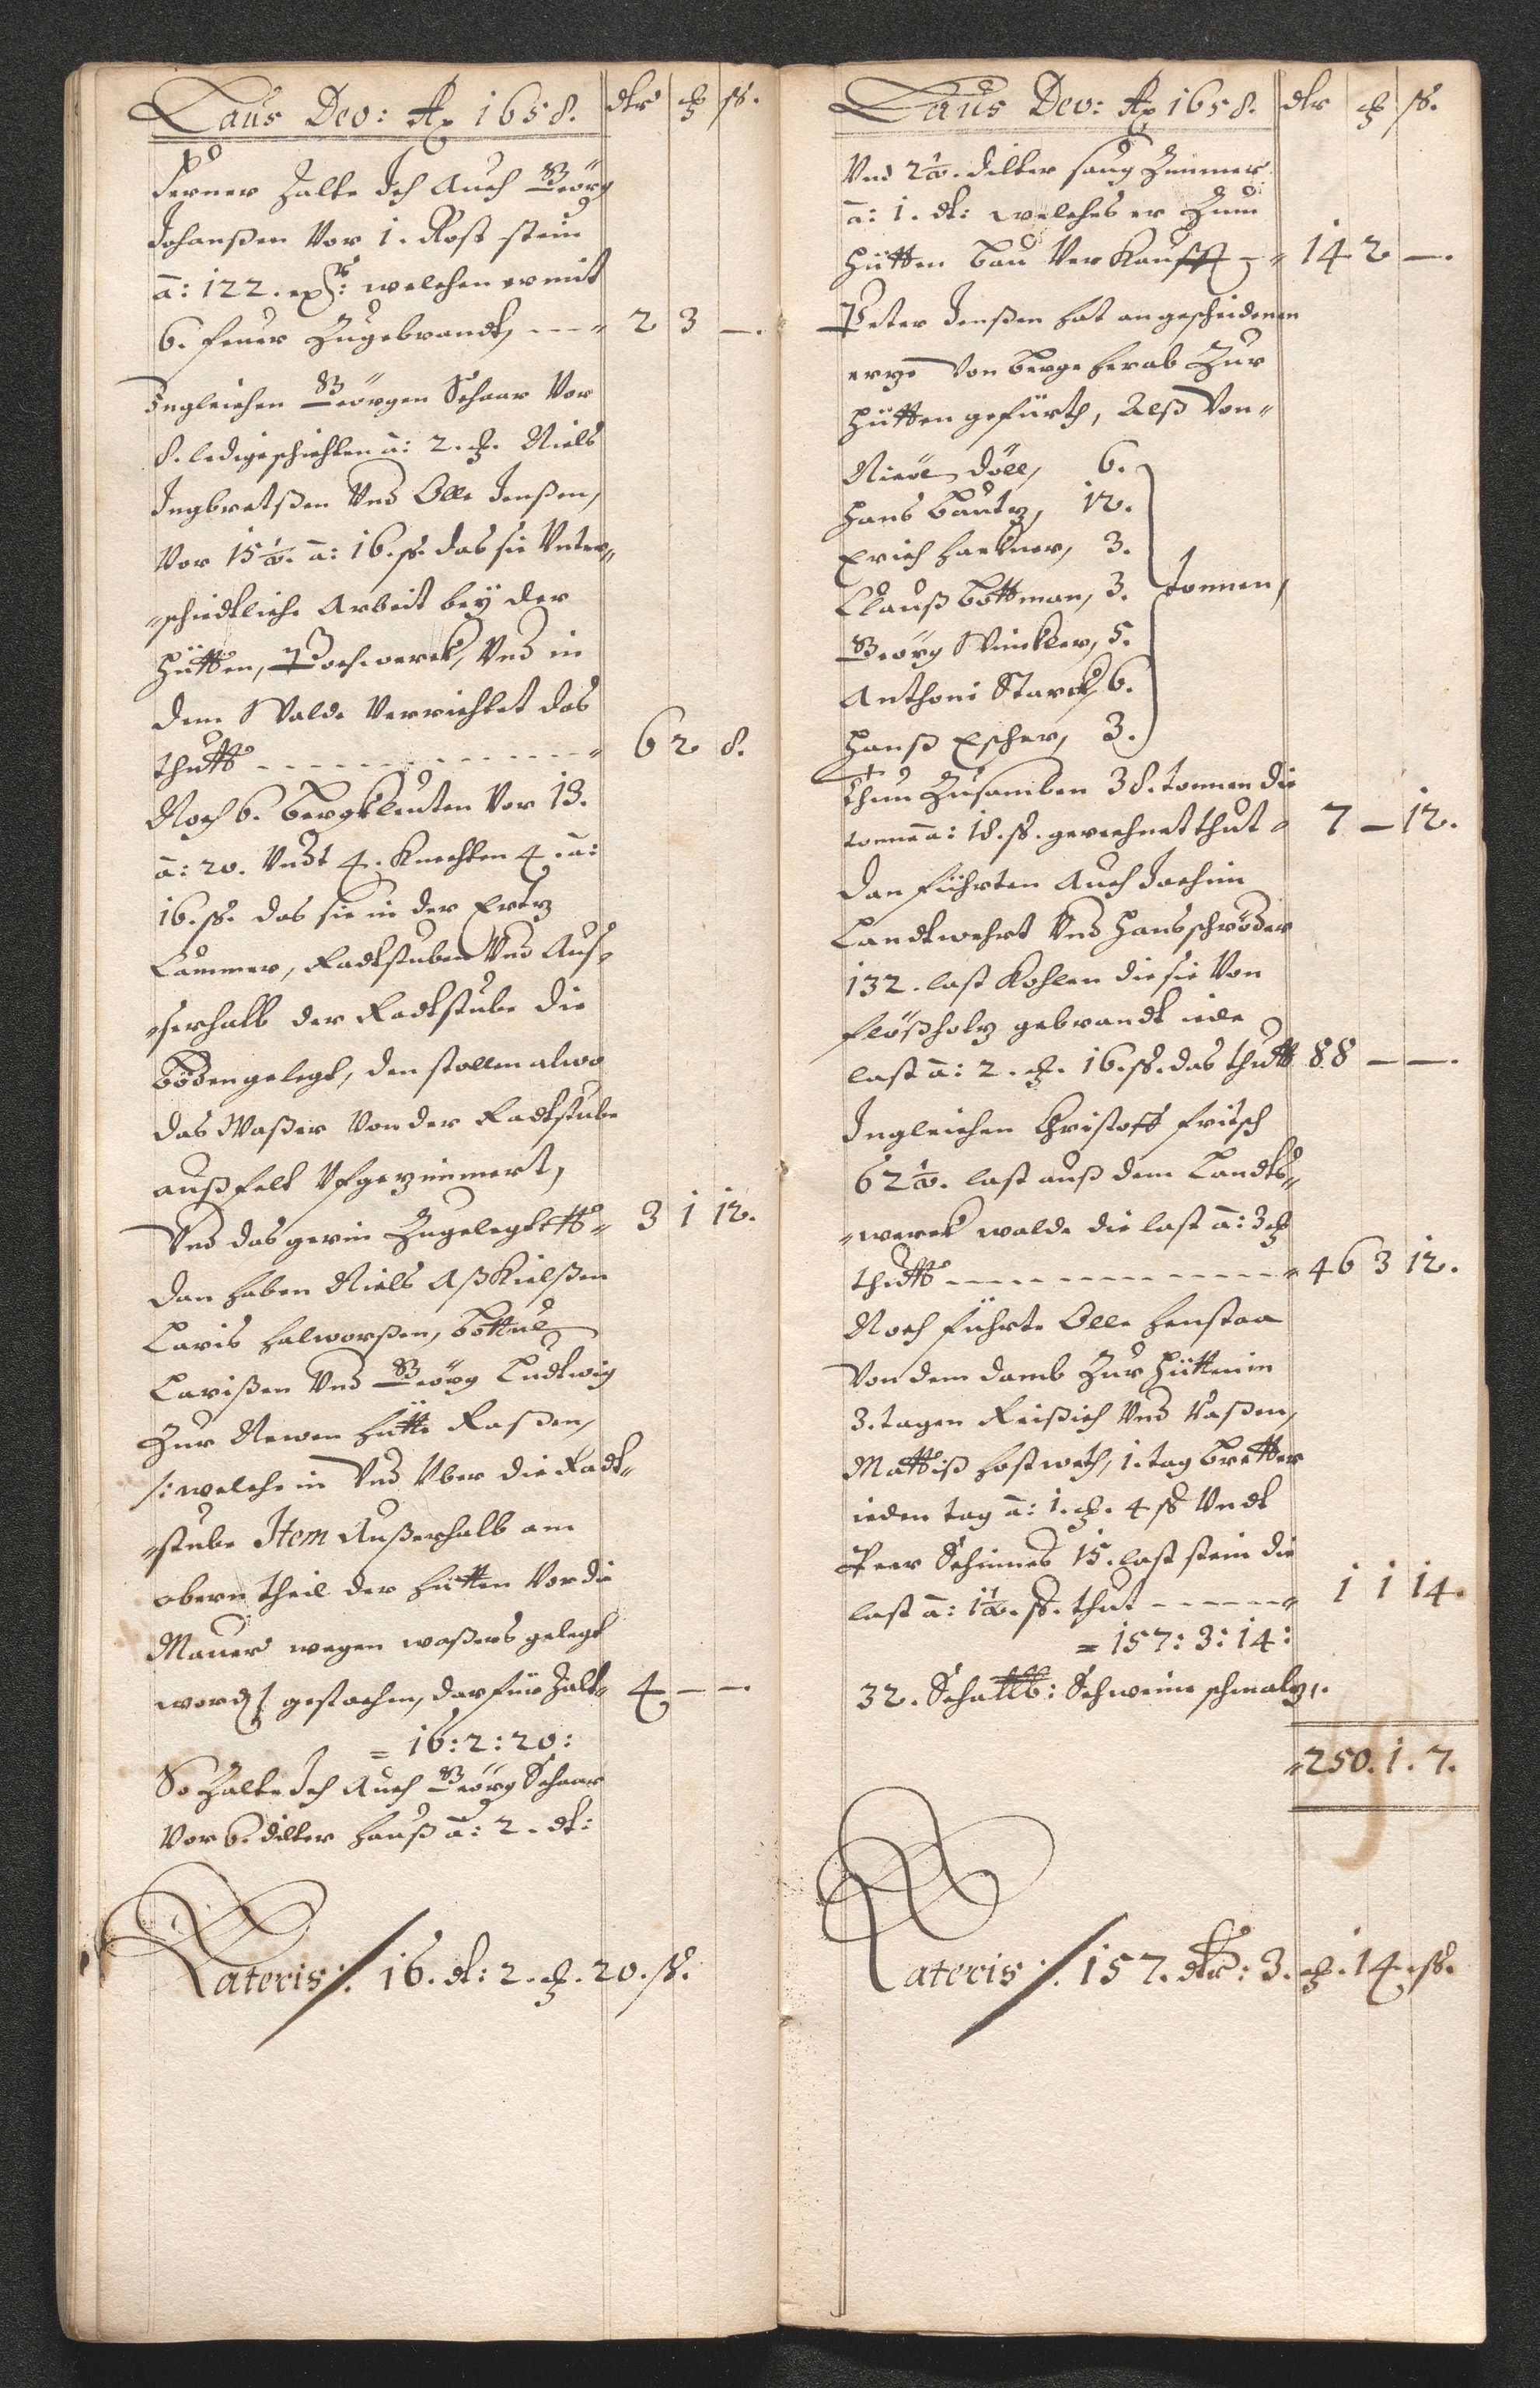 Laus Deo: Aō 1658. dlr ꝶ ß.
Ferner Zalte Ich Auch Geörg
Johanßen Vor 1. Rost stein
â: 122. welchen er mit
6. feuer Zugebrandt, --- 2 3 —.
Ingleichen Geörgen Schaar Vor
8. ledigeschichten â: 2. ꝶ. Niels
Ingbretßen Vnd Olle Jenßen,
Vor 15½. â: 16. ß. das sie Vnter„
„schiedtliche Arbeit beÿ der
Hütten, Pochwerck, Vnd in
dem Walde Verrichtet das
thutt ------------ 6 2 8.
Noch 6. bergkleuten Vor 13.
â: 20. Vndt 4. Knechten 4. â:
16. ß. das sie in der Ertz
Cammer, Radtstuben Vnd Aus„
„serhalb der Radtstube die
böden gelegt, den stollen alwo
das Waßer Von der Radtstube
außfelt Vfgezimmert,
Vnd das gerin Zugelegt 3 1 12.
dan haben Niels Aßkielßen
Laris Halworßen, Bottul
Larißen Vnd Geörg Ludtwig
Zur Newen Hütte Raßen,
/: welche in Vnd Vber die Radt„
„stube Item Außerhalb am
obern theil der Hütten Vor die
Mauer wegen waßers gelegt
word :/ gestochen, darfür Zalt 4 — —.
= 16: 2: 20:
So Zalte Ich Auch Geörg Schaar
Vor 6. dilter hauß â: 2. dl:
Lateris ./. 16. dl: 2. ꝶ. 20. ß.
Laus Deo: Aō 1658. dlr ꝶ ß.
Vnd 2½. dilter Zimmer
â: 1. dl: welches er Zum
Hütten bau Verkaufft 14 2 —.
Peter Jenßen hat an gescheidenen
ertze Von berge herab Zur
Hütten geführt, Alß Von„
Nicöl Döll, 6.
Hans Bautz, 12.
Erich Hackner, 3.
Clauß Bottman, 3. tonnen,
Geörg Winkler, 5.
Anthoni Starck, 6.
Hanß Escher, 3.
Thun Zusamben 38. tonnen die
tonne â: 18. ß. gerechnet thut 7 — 12.
Dan führten Auch Jochim
Landtwehrt Vnd Hans Schröder
132. last Kohlen die sie Von
flößholtz gebrandt iede
last â: 2. ꝶ. 16. ß. das thutt 88 — —.
Ingleichen Christoff Fritsch
62½. last auß dem Landts„
„werck walde die last â: 3 ꝶ
thutt --------------- 46 3 12.
Noch führte Olle Henstaa
Von dem damb Zur Hütten in
3. tagen Reißich Vnd Raßen,
Mattiß Hostweth, 1. tag bretter
ieden tag â: 1. ꝶ. 4 ß Vndt
Peer Schinnes 15. last stein die
last â: 1½. ß. thut ------ 1 1 14.
= 157: 3: 14:
32. Schweine schmaltz,.
250. 1. 7.
Lateris ./. 157. dlr: 3. ꝶ. 14. ß.